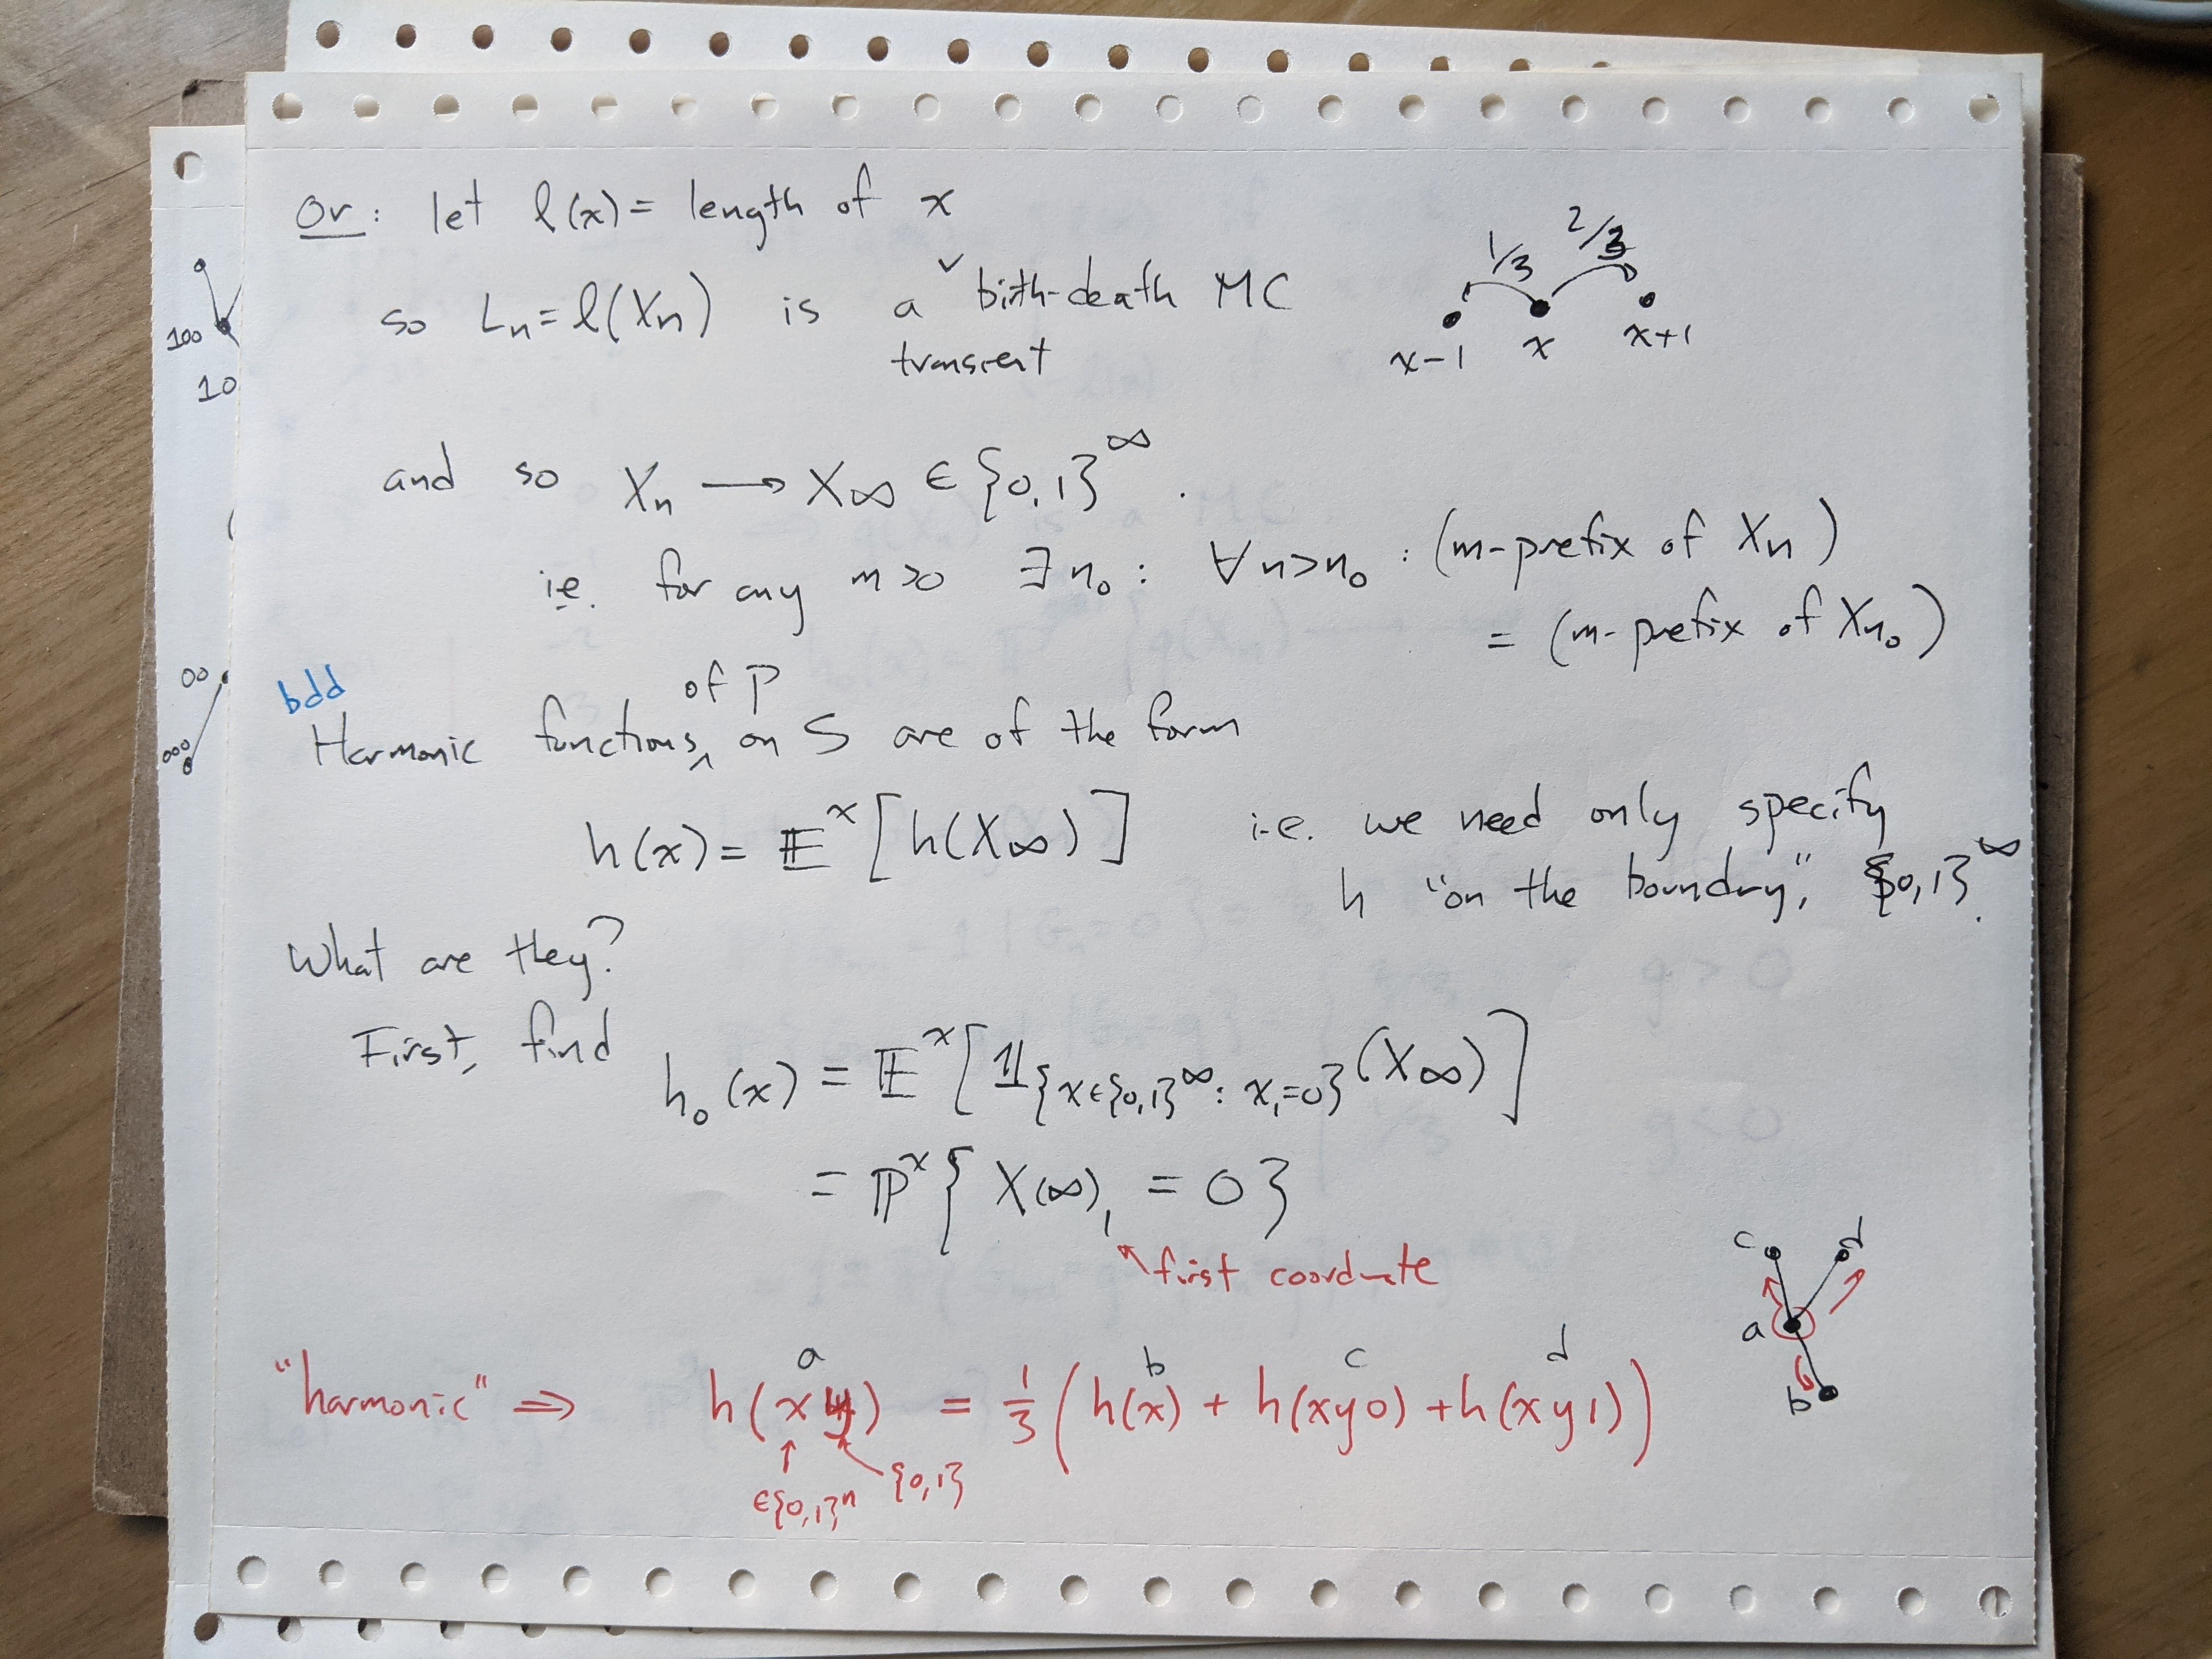 Or: let ℓ(x) = length of x
1/3 2/3
x-1 x x+1
so Lₙ = ℓ(Xₙ) is a ˅ birth-death MC
transient
100
10
and so Xₙ → X∞ ∈ {0,1}^∞.
i.e. for any m>0 ∃n₀: ∀n>n₀: (m-prefix of Xₙ)
= (m-prefix of Xₙ₀)
00
000
bdd
of P
Harmonic functions ‸ on S are of the form
h(x) = 𝔼ˣ[h(X∞)] i.e. we need only specify
h "on the boundry", {0,1}^∞.
What are they?
First, find h₀(x) = 𝔼ˣ[𝟙_{x∈{0,1}^∞: x₁=0}(X∞)]
= ℙˣ{X(∞)₁ = 0}
first coordinate
c d
a
b
a b c d
"harmonic" ⇒ h(xy) = 1/3 (h(x) + h(xy0) + h(xy1))
∈{0,1}ⁿ {0,1}